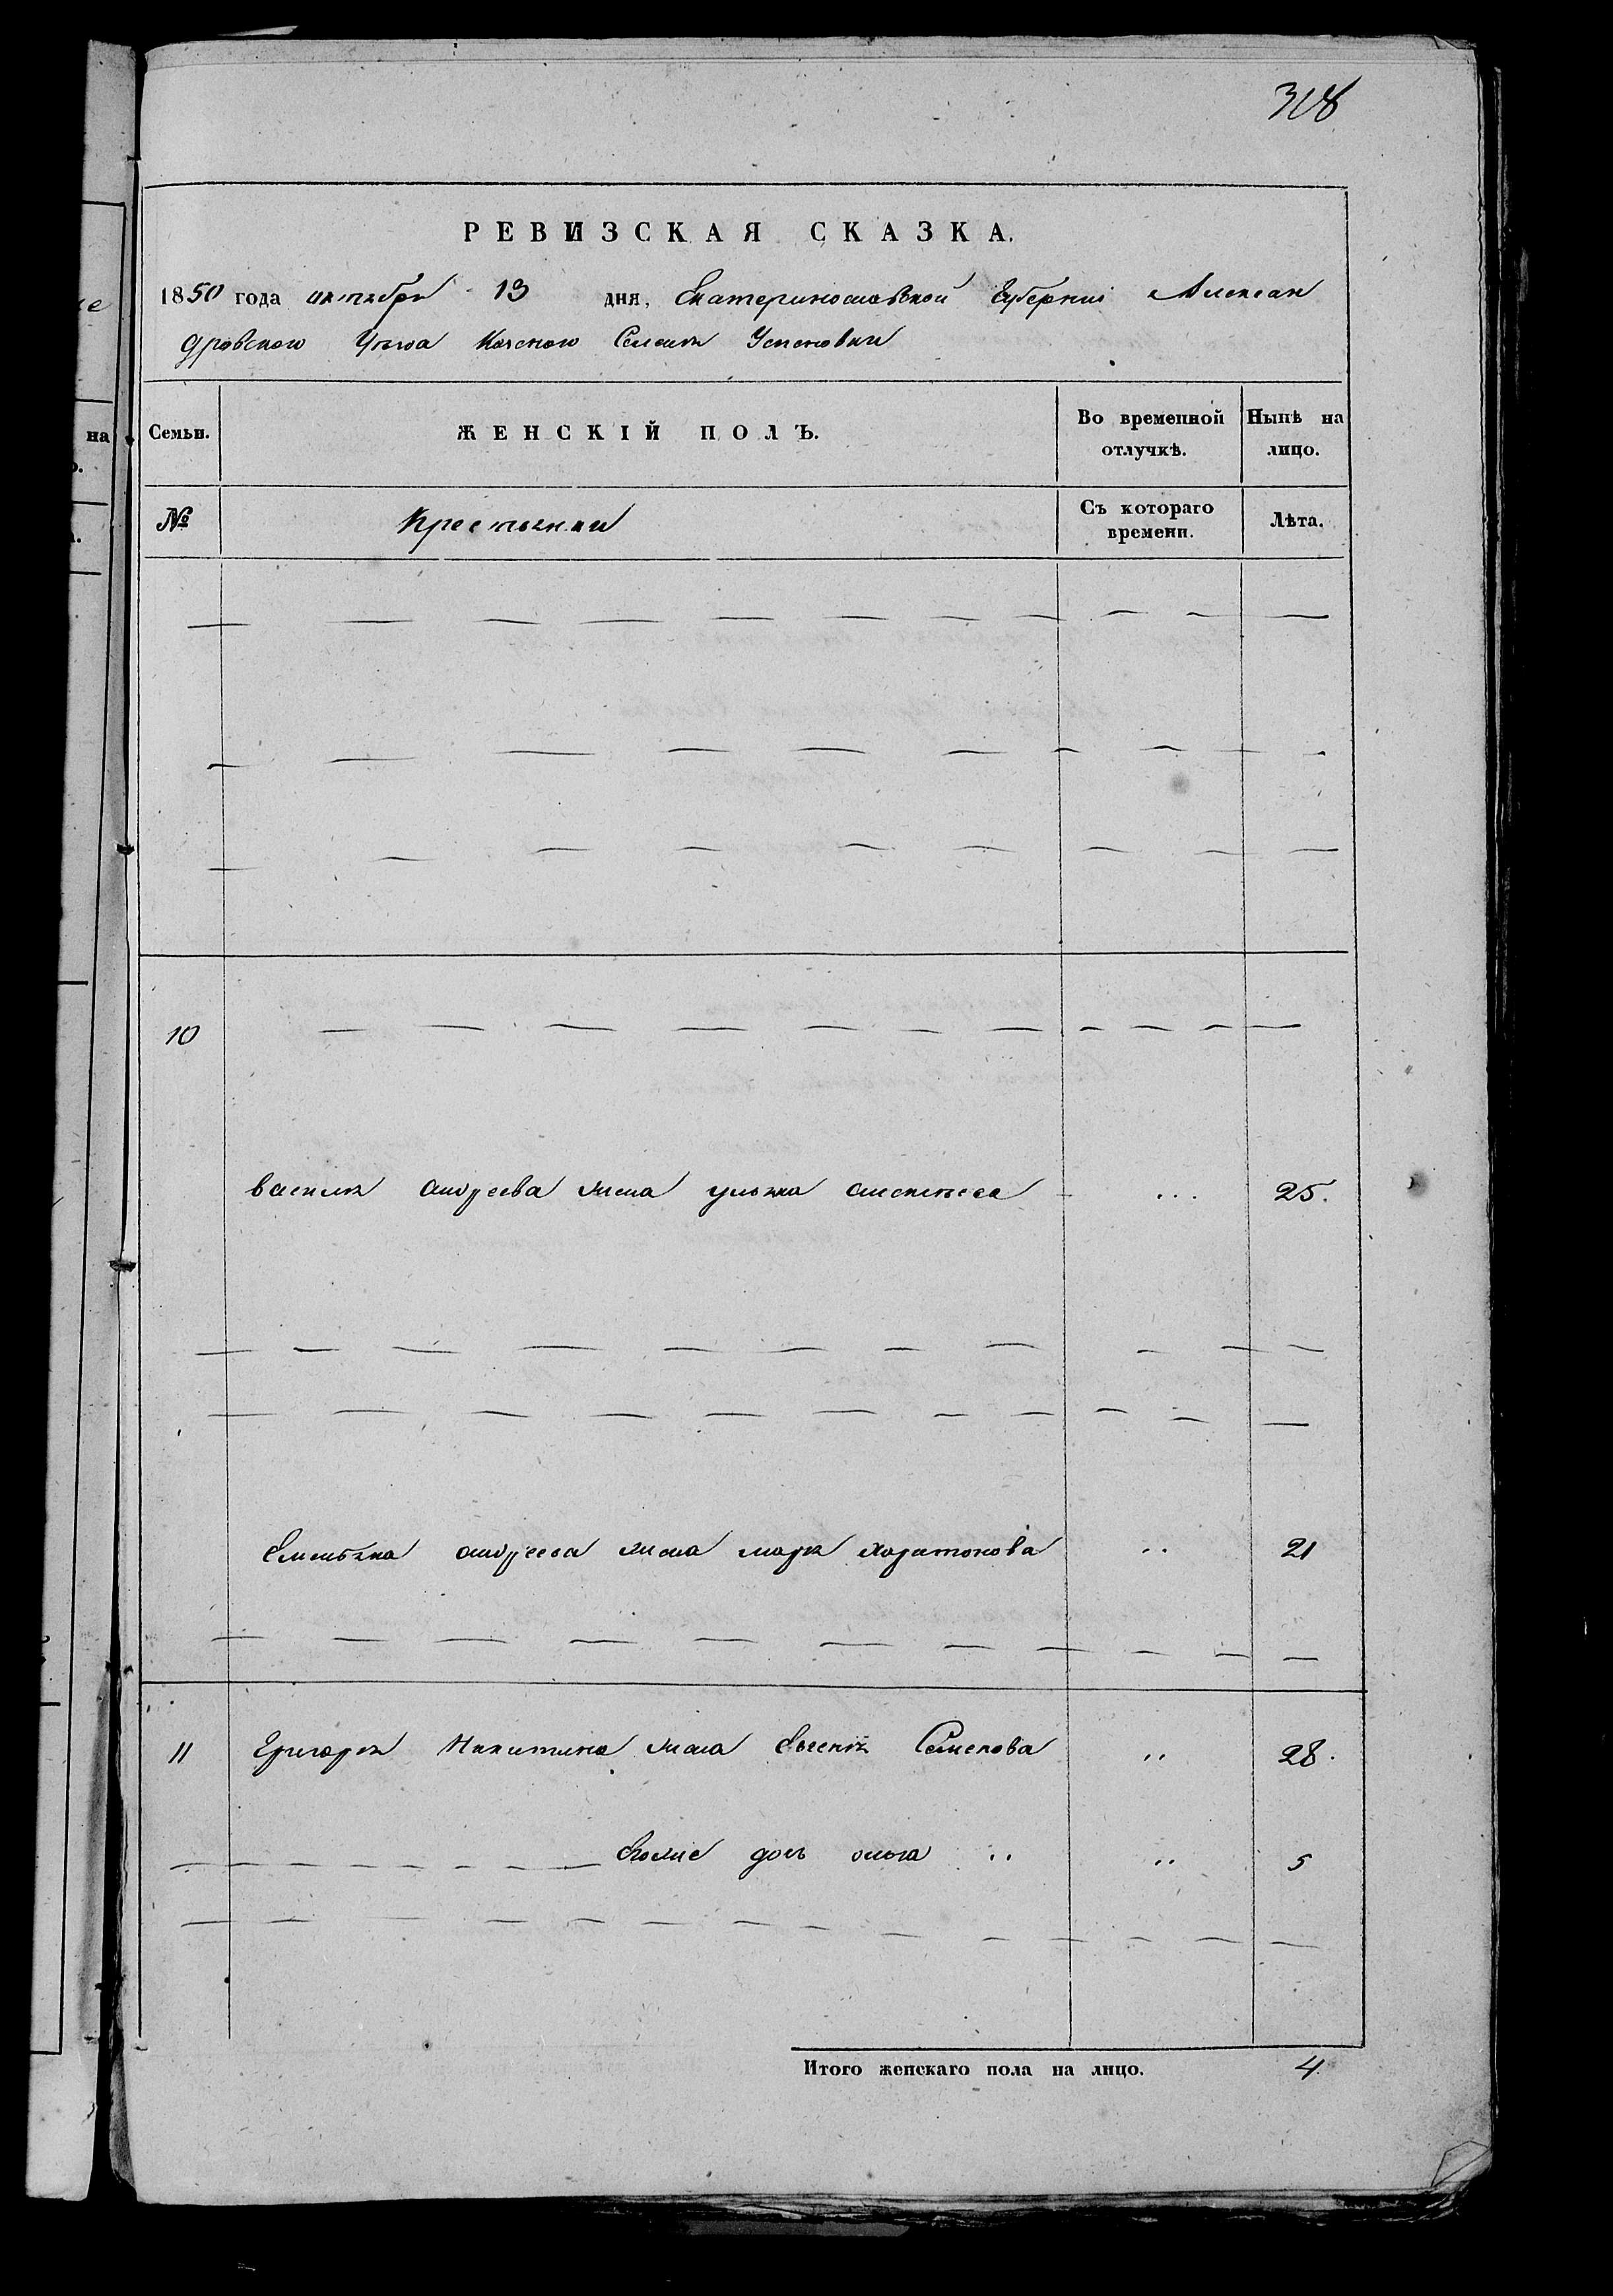 318
РЕВИЗСКАЯ СКАЗКА.
1850 года октября 13 дня, Екатеринославской Губерніи Алексан
дровскаго Уѣзда Селенія
Семьи. ЖЕНСКІЙ ПОЛЪ. Во временной отлучкѣ. Нынѣ на лицо.
№ Крестьянки Съ котораго времени. Лѣта.
10
Василия Андреева жена Ульяна Алексеева 25.
Емельяна Андреева жена Марія Харитонова 21
11 Григория Никитина жена Евгенія Семенова 28.
Ево же дочь Ольга 5
Итого женскаго пола на лицо. 4